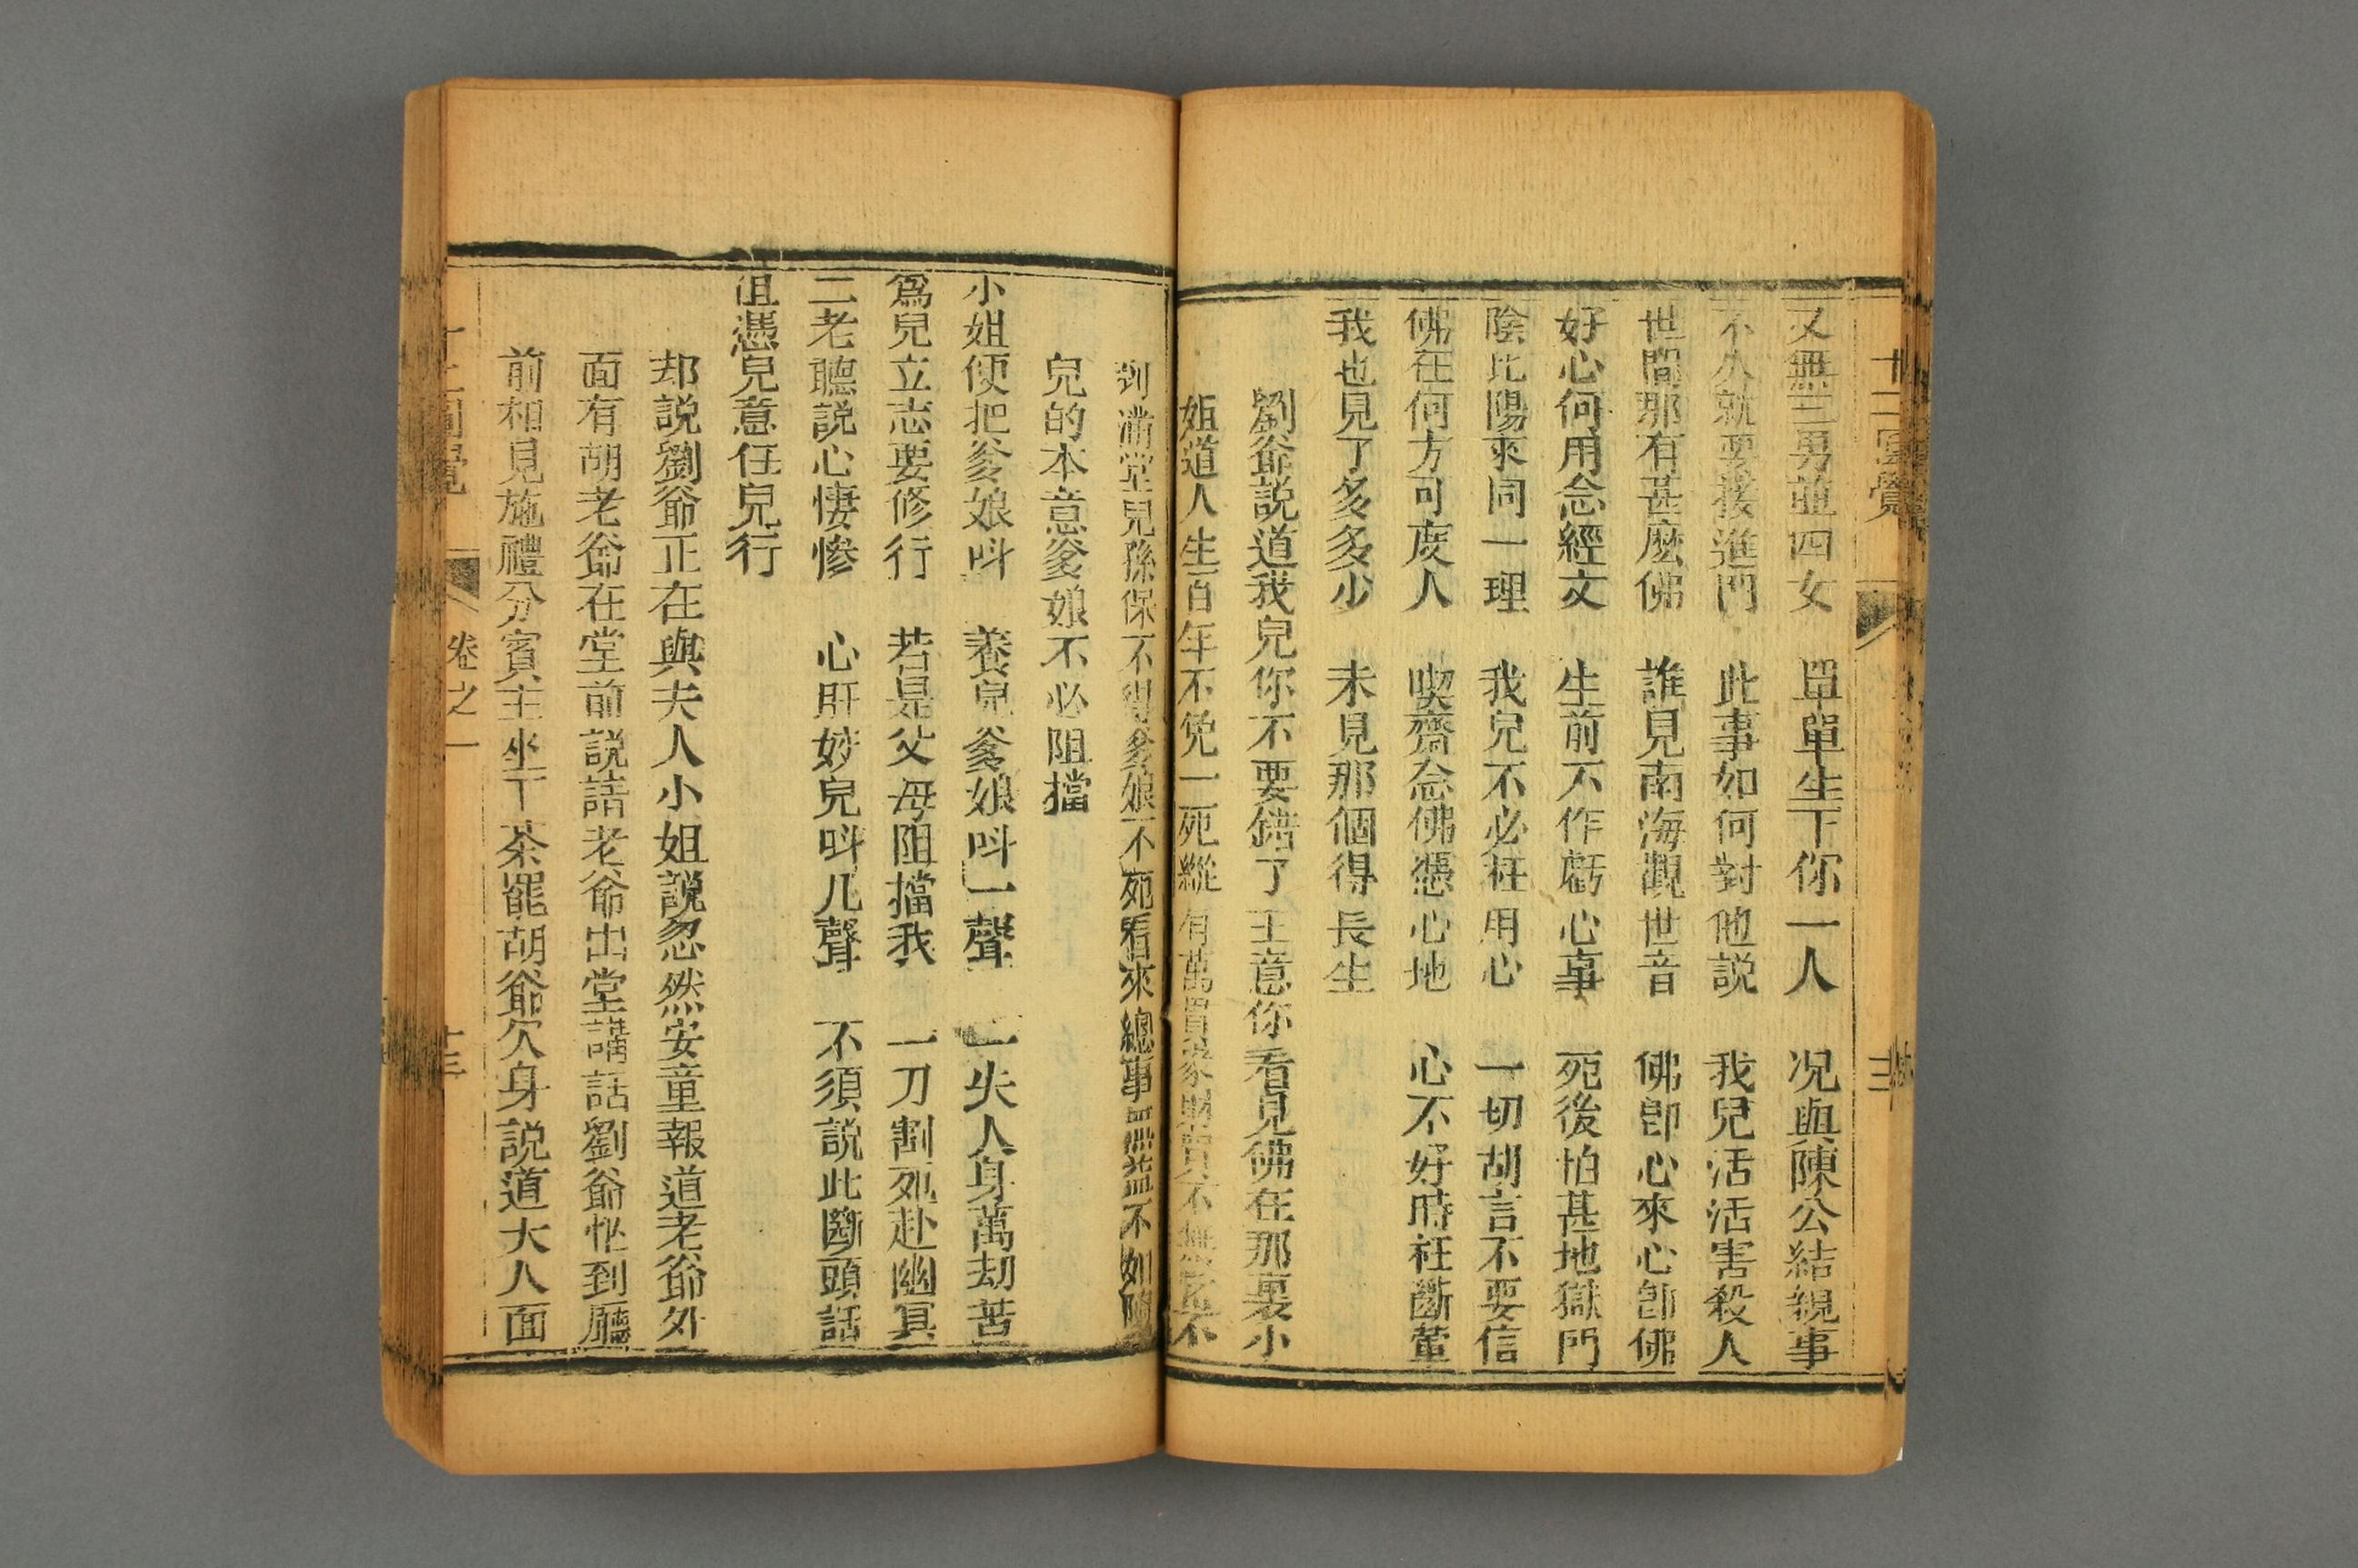 十二圓覺
又無三男並四女 單單生下你一人 况與陳公結親事
不久就要接進門 此事如何對他説 我兒活活害殺人
世間那有甚麽佛 誰見南海觀世音 佛卽心來心卽佛
好心何用念經文 生前不作虧心事 死後怕甚地獄門
陰比陽來同一理 我兒不必枉用心 一切胡言不要信
佛在何方可度人 喫齋念佛憑心地 心不好時枉斷葷
我也見了多多少 未見那個得長生
劉爺説道我兒你不要錯了主意你看見佛在那裏小
姐道人生百年不免一死縱有萬貫家財買不
到滿堂兒孫保不得爹娘不死看來總事無益不如隨
兒的本意爹娘不必阻擋
小姐便把爹娘呌 養兒爹娘呌一聲 一失人身萬劫苦
爲兒立志要修行 若是父母阻擋我 一刀割死赴幽冥
二老聽説心悽慘 心肝妙兒呌几聲 不須説此斷頭話
但憑兒意任兒行
却説劉爺正在與夫人小姐説忽然安童報道老爺外
面有胡老爺在堂前説請老爺出堂講話劉爺忙到廳
前相見施禮分賓主坐下茶罷胡爺欠身説道大人面
十二圓覺 卷之一 十三